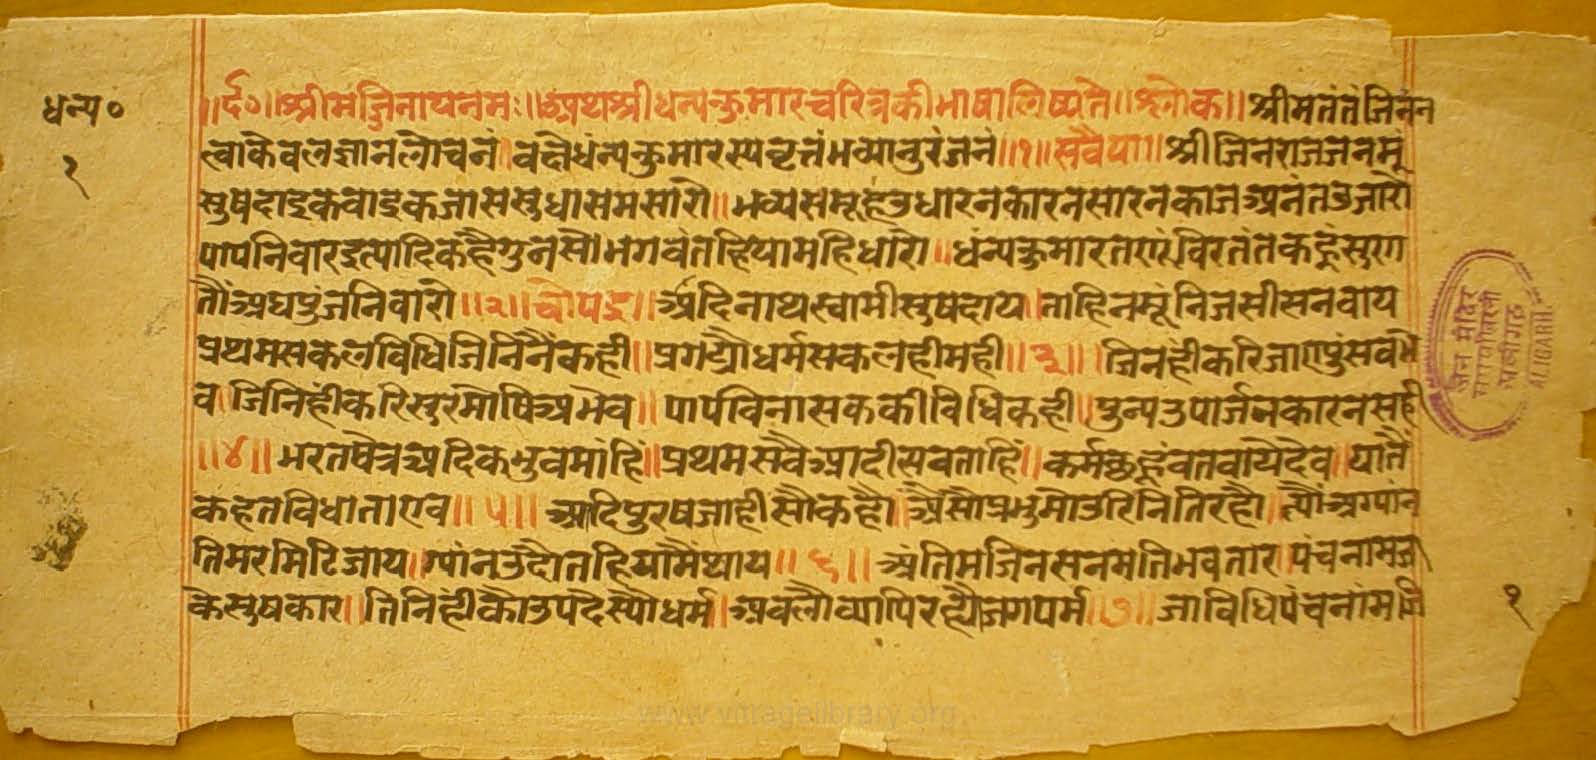 धन्य०
१
॥र्द०॥श्रीमज्जिनायनमः॥अथश्रीधन्यकुमारचरित्रकीभाषालिष्यते॥श्लोक॥श्रीमतंतंजिनंन
त्वाकेवलज्ञानलोचनं॥वक्षेधंन्यकुमारस्यवृत्तंभव्यानुरंजनं॥१॥सवैया॥श्रीजिनराजजनमूं
सुषदाइकवाइकजाससुधासमसारो॥भव्यसमूहउधारनकारनसारनकाजअनंतउजारो
पापनिवारइत्यादिकहैगुनसोभगवंतहियामहिधारो॥धंन्यकुमारतणरंविरतंतकहूंसुरण
तौंअघपुंजनिवारो॥२॥चौपइ॥आदिनाथस्वामीसुषदाय॥ताहिनमूंनिजसीसनवाय
प्रथमसकलविधिजिनिनैंकही॥प्रगट्यौधर्मसकलहीमही॥३॥जिनहीकरिजाणपुंसवभे
व॥जिनिहींकरिसुरमोषिअभेव॥पापविनासककीविधिकही॥पुन्यउपार्जनकारनसही
॥४॥भरतषेत्रआदिकभुवमांहिं॥प्रथमसंवैआदीसवताहिं॥कर्मकछूंवतवायेदेव॥यातैं
कहतविधाताएव॥५॥आदिपुरषजाहीसौकहौ॥अैसोप्रभुमोउरिनितिरहौ॥त्यौंअग्यांन
तिमरमिटिजाय॥ग्यांनउदौतहियामैंथाय॥६॥अंतिमजिनसनमतिभवतार॥पंचनामजा
केसुषकार॥तिनिहींकौउपदेस्यौधर्म॥अवलौव्यापिरह्यौजगपर्म॥७॥जाविधिपंचनांमजि
१
जैन मंदिर
अलीगढ
ALIGARH.
www.vitragelibrary.org